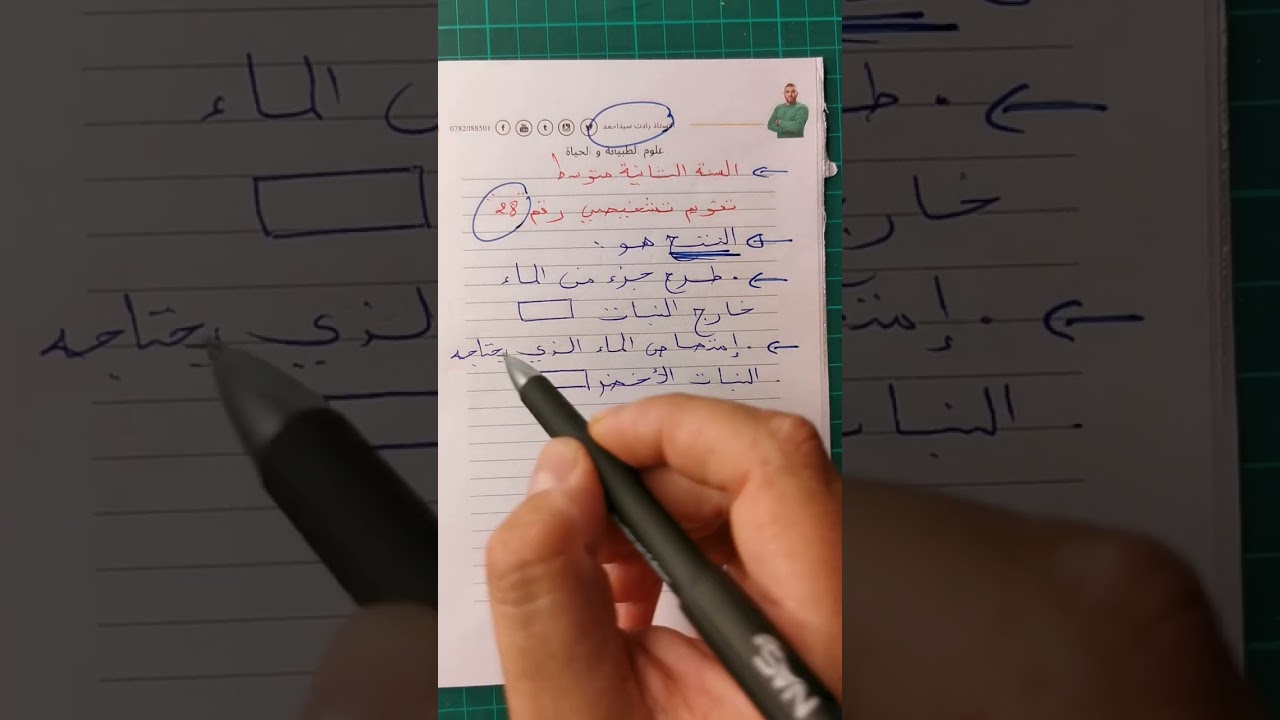 0782088501 الأستاذ زادت سيداحمد
علوم الطبيعة و الحياة
السنة الثانية متوسط
تقويم تشخيصي رقم 28
النتح هو :
. طرح جزء من الماء
خارج النبات
. إمتصاص الماء الذي يحتاجه
النبات الأخضر .
NASS